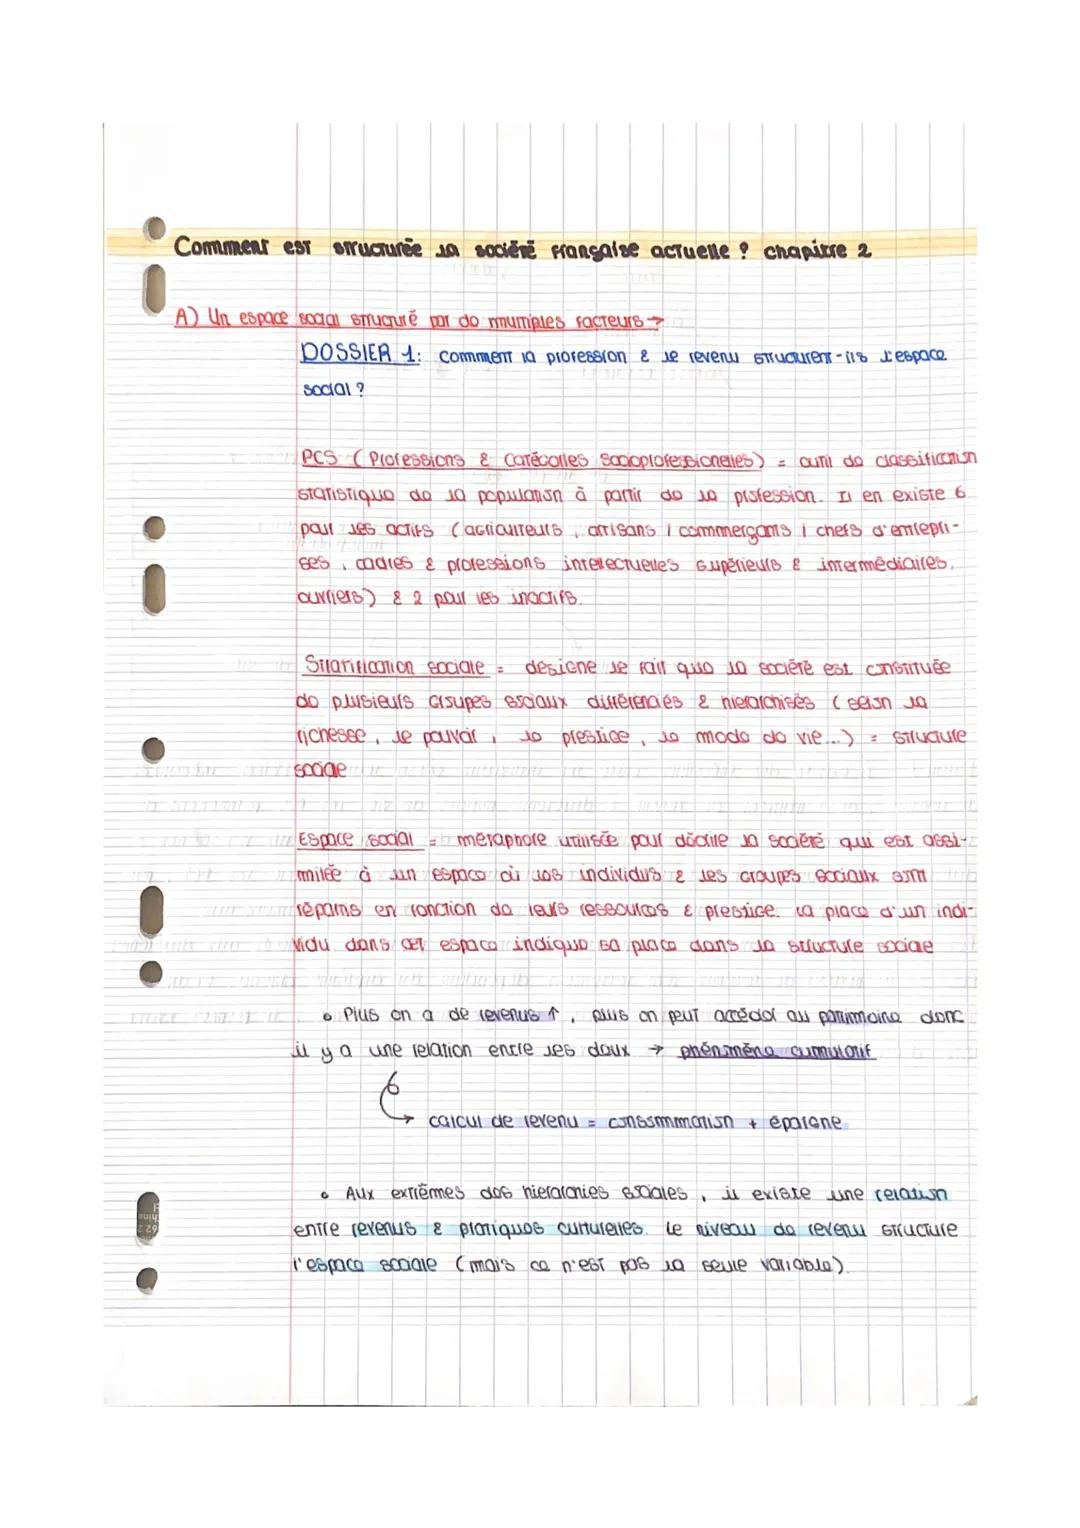 Comment est structurée la société française actuelle ? chapitre 2
A) Un espace social structuré par de multiples facteurs →
DOSSIER 1: comment la profession & le revenu structurent-ils l'espace
social ?
PCS (Professions & Catégories Socioprofessionelles) = outil de classification
statistique de la population à partir de la profession. Il en existe 6
pour les actifs (agriculteurs, artisans / commerçants / chefs d'entrepri-
ses, cadres & professions intellectuelles supérieurs & intermédiaires,
ouvriers) & 2 pour les inactifs.
Stratification sociale = designe le fait que la société est constituée
de plusieurs groupes sociaux différenciés & hierarchisés (selon la
richesse, le pouvoir, le prestige, le mode de vie...) = structure
sociale
Espace social = métaphore utilisée pour décrire la société qui est assi-
milée à un espace où les individus & les groupes sociaux sont
répartis en fonction de leurs ressources & prestige. la place d'un indi-
vidu dans cet espace indique sa place dans la structure sociale
• Plus on a de revenus ↑, plus on peut accéder au patrimoine donc
il y a une relation entre les deux → phénomène cumulatif
calcul de revenu = consommation + épargne
• Aux extrêmes des hierarchies sociales, il existe une relation
entre revenus & pratiques culturelles. Le niveau de revenu structure
l'espace sociale (mais ca n'est pas la seule variable).